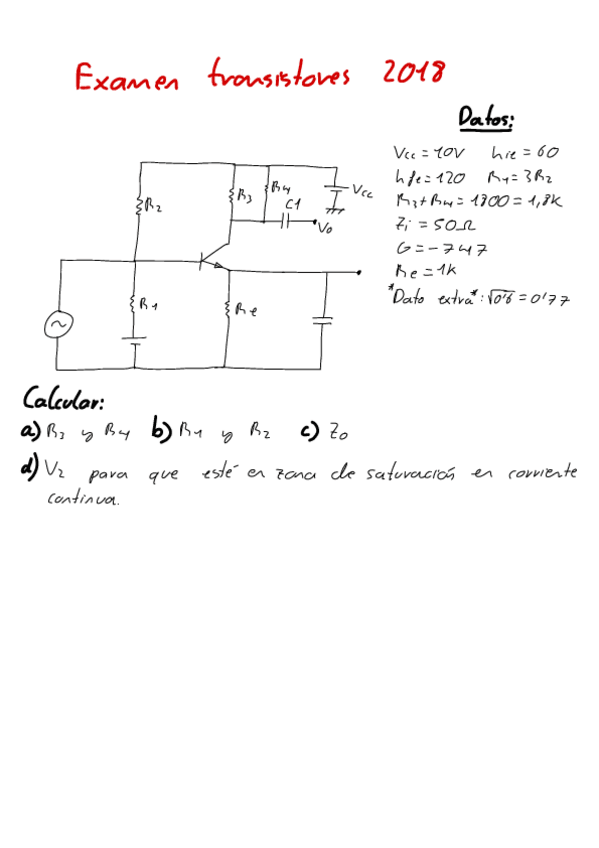 Examen transistores 2018
Datos:
Vcc = 10V hie = 60
hfe = 120 R1 = 3R2
R3 + R4 = 1800 = 1,8K
Zi = 50Ω
G = -747
Re = 1K
*Dato extra*: √0'6 = 0'77
R2
R3
R4
C1
Vcc
Vo
R1
Re
Calcular:
a) R3 y R4 b) R1 y R2 c) Zo
d) V2 para que esté en zona de saturación en corriente
continua.